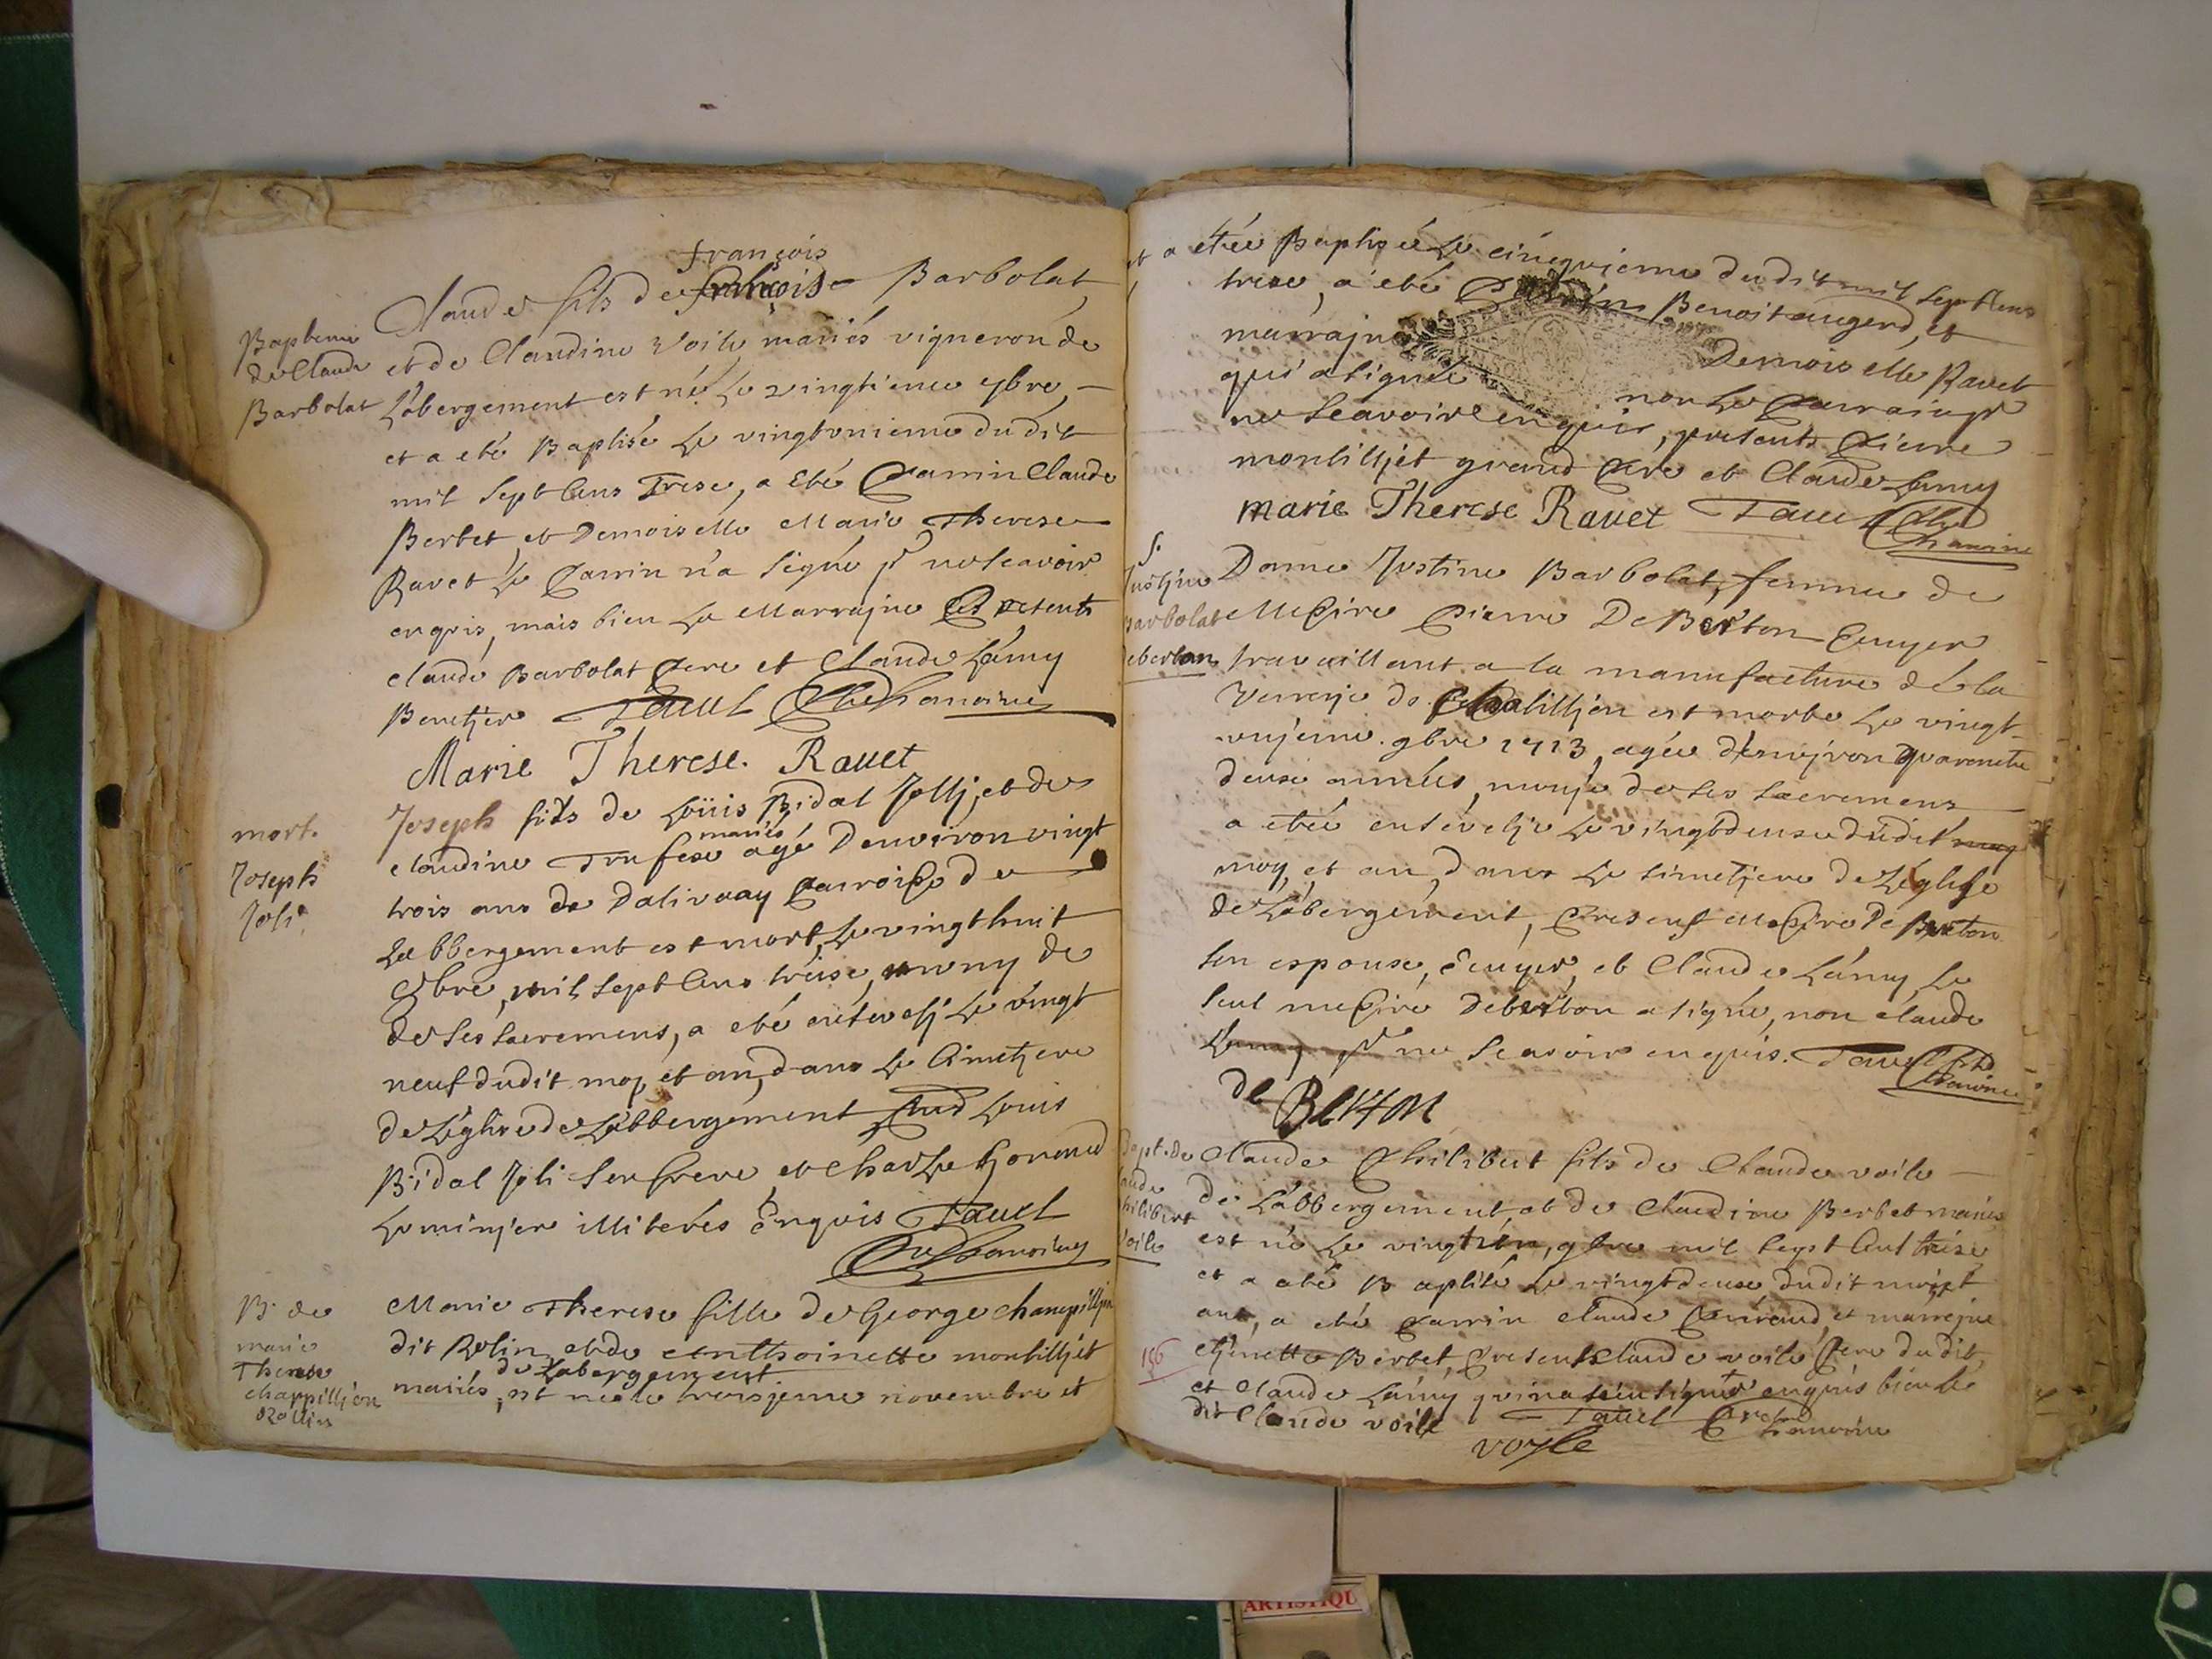 françois
Claude fils de françois Barbolat
Bapteme
de Claude
Barbolat
et de Claudine Voile mariés vigneron de
Labergement est né le vingtieme 9bre
et a eté Baptisé le vingtunieme dudit
mil sept Cens Trese, a Eté Parrin Claude
Berbet, et Demoiselle Marie Therese
Ravet le Parrin n'a signé pr ne scavoir
enqris, mais bien la Marrajne Presents
claude Barbolat Pere et Claude Lámy
Benetjer Tauel Pbr Chanoine
Marie Therese. Rauet
mort.
Joseph
Joli.
Joseph fils de Loüis Bidal Jollj, et de
mariés
claudine Trufese agé Denviron vingt
trois ans de Dalivoay Parroisse de
Labbergement est mort, le vingt huit
9bre, mil sept Cens trèise, muny de
de ses sacremens, a eté entevelj le vingt
neuf dudit moy, et an, dans le Cimetjere
de Léglise de Labbergement Louis
Bidal Joli son frere et charle
Luminjer illiterés Enquis Tauel
Chanoine
B. de
marie
Therese
chappilljon
Rollin
Marie Therese fille de George champilljon
dit Rolin et de anthoinette montilljét
de Labergement
mariés, est neé le troisjeme novembre et
et a etée Baptisée Le cinquieme dudit mil sept Cens
trese, a eté Parrin Benoit augerd, et
marrajne Demoiselle Ravet
qui a signée non le Parrainpr
ne Scavoir enquis, presents Pierre
montilljét grand Pére et Claude Lamy
marie Therese Rauet Tauel Pbr
Chanoine
S.
Justjne
Barbolat
deberton
Dame Justine Barbolat, femme de
Messire Pierre De Berton Ecuyer
travaillant a la manufacture dé la
Verrerje de Chatilljon est morte le vingt
unjeme. 9bre 1713, agée d'énvjron quarente
deuse années, munje de ses sacremens
a etée entevelje le vingtdeuse dudit moy
moy, et an, dans Le simetjere de Léglise
de Labergement, Present Messire De Berton
son espouse, Ecuyer, et Claude Lámy, Le
seul messire Deberton a signé, non claude
Lamy pr ne Scavoir enquis. Tauel Pbr
Chanoine
de Berton
Bapt. de
claude
Philibert
Voile
Claude Philibert fils de Claude voile
de Labbergement et de Claudine Berbet mariés
est né Le vingtién, 9bre mil sept Cent trèise
et a eté Baptisé Le vingtdeuse dudit mois et
an, a eté Parrin claude et marrejne
156
etjenette Berbet, Presents claude voile Pere dudit,
et claude Lámy qui n'a signé enquis bien le
dit Claude voile Tauel Pbr Chanoine
voyle
ARTISTIQU